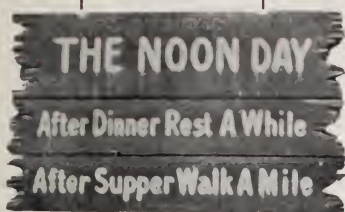 THE NOON DAY
After Dinner Rest A While
After Supper Walk A Mile